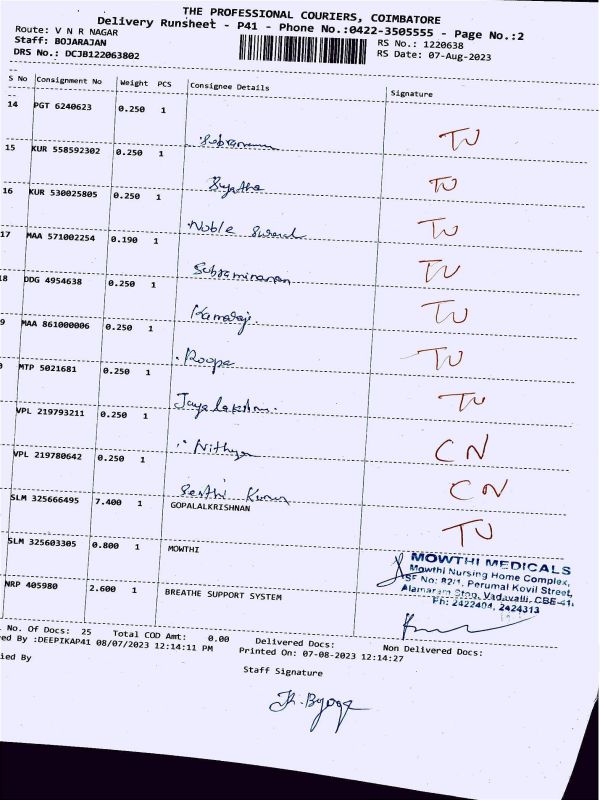 THE PROFESSIONAL COURIERS, COIMBATORE
Delivery Runsheet - P41 - Phone No.:0422-3505555 - Page No.:2
Route: V N R NAGAR
Staff: BOJARAJAN
DRS No.: DCJB122063802
RS No.: 1220638
RS Date: 07-Aug-2023
S No Consignment No Weight PCS Consignee Details Signature
14 PGT 6240623 0.250 1
TU
15 KUR 558592302 0.250 1
Sujatha TU
16 KUR 530025805 0.250 1
Noble TU
17 MAA 571002254 0.190 1
Subraminanan TU
8 DDG 4954638 0.250 1
Kamaraj TU
9 MAA 861000006 0.250 1
Roopa TU
MTP 5021681 0.250 1
Jayalakshmi TU
VPL 219793211 0.250 1
Nithya CN
VPL 219780642 0.250 1
Senthi Kumar CN
SLM 325666495 7.400 1 GOPALALKRISHNAN
TU
SLM 325603305 0.800 1 MOWTHI
MOWTHI MEDICALS
Mowthi Nursing Home Complex,
SF No: 82/1, Perumal Kovil Street,
Alamaram Stop, Vadavalli, CBE-41.
Ph: 2422404, 2424313
NRP 405980 2.600 1 BREATHE SUPPORT SYSTEM
No. Of Docs: 25 Total COD Amt: 0.00 Delivered Docs: Non Delivered Docs:
ed By :DEEPIKAP41 08/07/2023 12:14:11 PM Printed On: 07-08-2023 12:14:27
ied By
Staff Signature